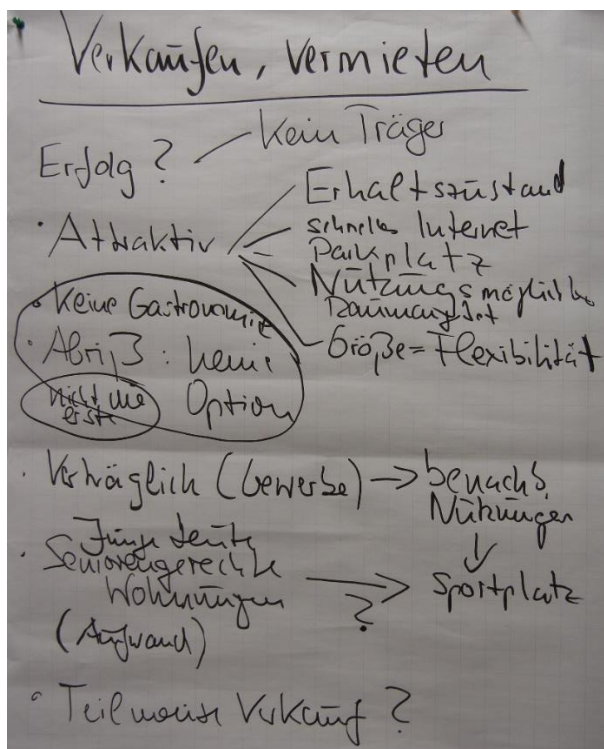 Verkaufen, vermieten
Erfolg ? Kein Träger
• Attraktiv
Erhaltszustand
schnelles Internet
Parkplatz
Nutzungsmöglichk.
Raumangebot
Größe = Flexibilität
• Keine Gastronomie
• Abriß : keine
Option
nicht die
erste
• Verträglich (Gewerbe) → benachb.
Nutzungen
↓
Sportplatz
Junge Leute
• Seniorengerechte
Wohnungen → ?
(Aufwand)
• Teilweise Verkauf ?